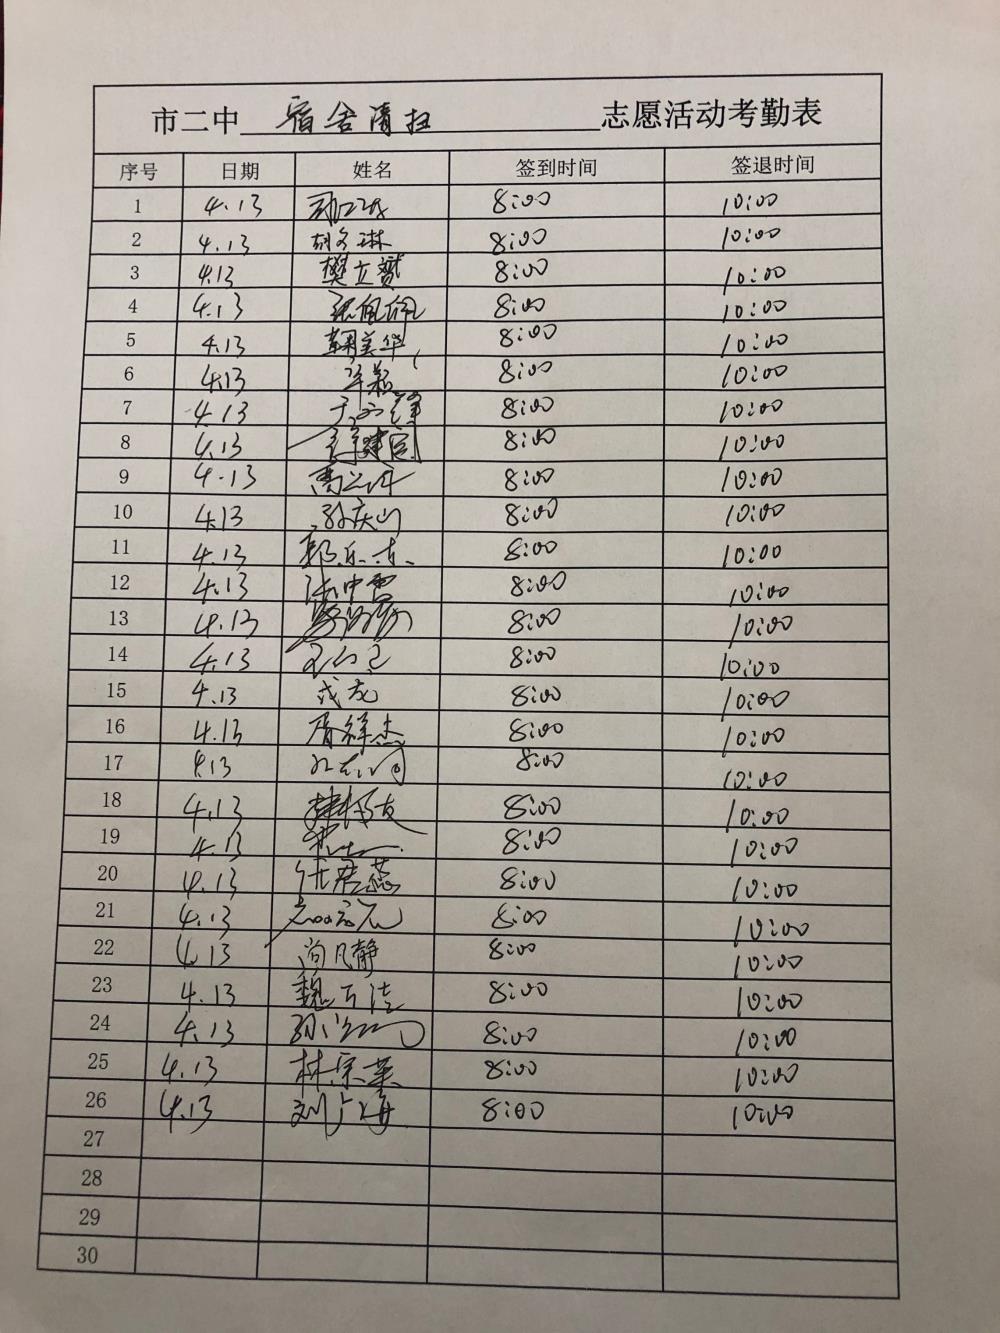 市二中 宿舍清扫 志愿活动考勤表
序号 日期 姓名 签到时间 签退时间
1 4.13 8:00 10:00
2 4.13 8:00 10:00
3 4.13 樊立赟 8:00 10:00
4 4.13 8:00 10:00
5 4.13 鞠美华 8:00 10:00
6 4.13 8:00 10:00
7 4.13 8:00 10:00
8 4.13 8:00 10:00
9 4.13 8:00 10:00
10 4.13 孙庆山 8:00 10:00
11 4.13 郭乐东 8:00 10:00
12 4.13 8:00 10:00
13 4.13 8:00 10:00
14 4.13 8:00 10:00
15 4.13 戎龙 8:00 10:00
16 4.13 8:00 10:00
17 4.13 8:00 10:00
18 4.13 8:00 10:00
19 4.13 8:00 10:00
20 4.13 任君蕊 8:00 10:00
21 4.13 8:00 10:00
22 4.13 尚凡静 8:00 10:00
23 4.13 8:00 10:00
24 4.13 8:00 10:00
25 4.13 林宗英 8:00 10:00
26 4.13 8:00 10:00
27
28
29
30